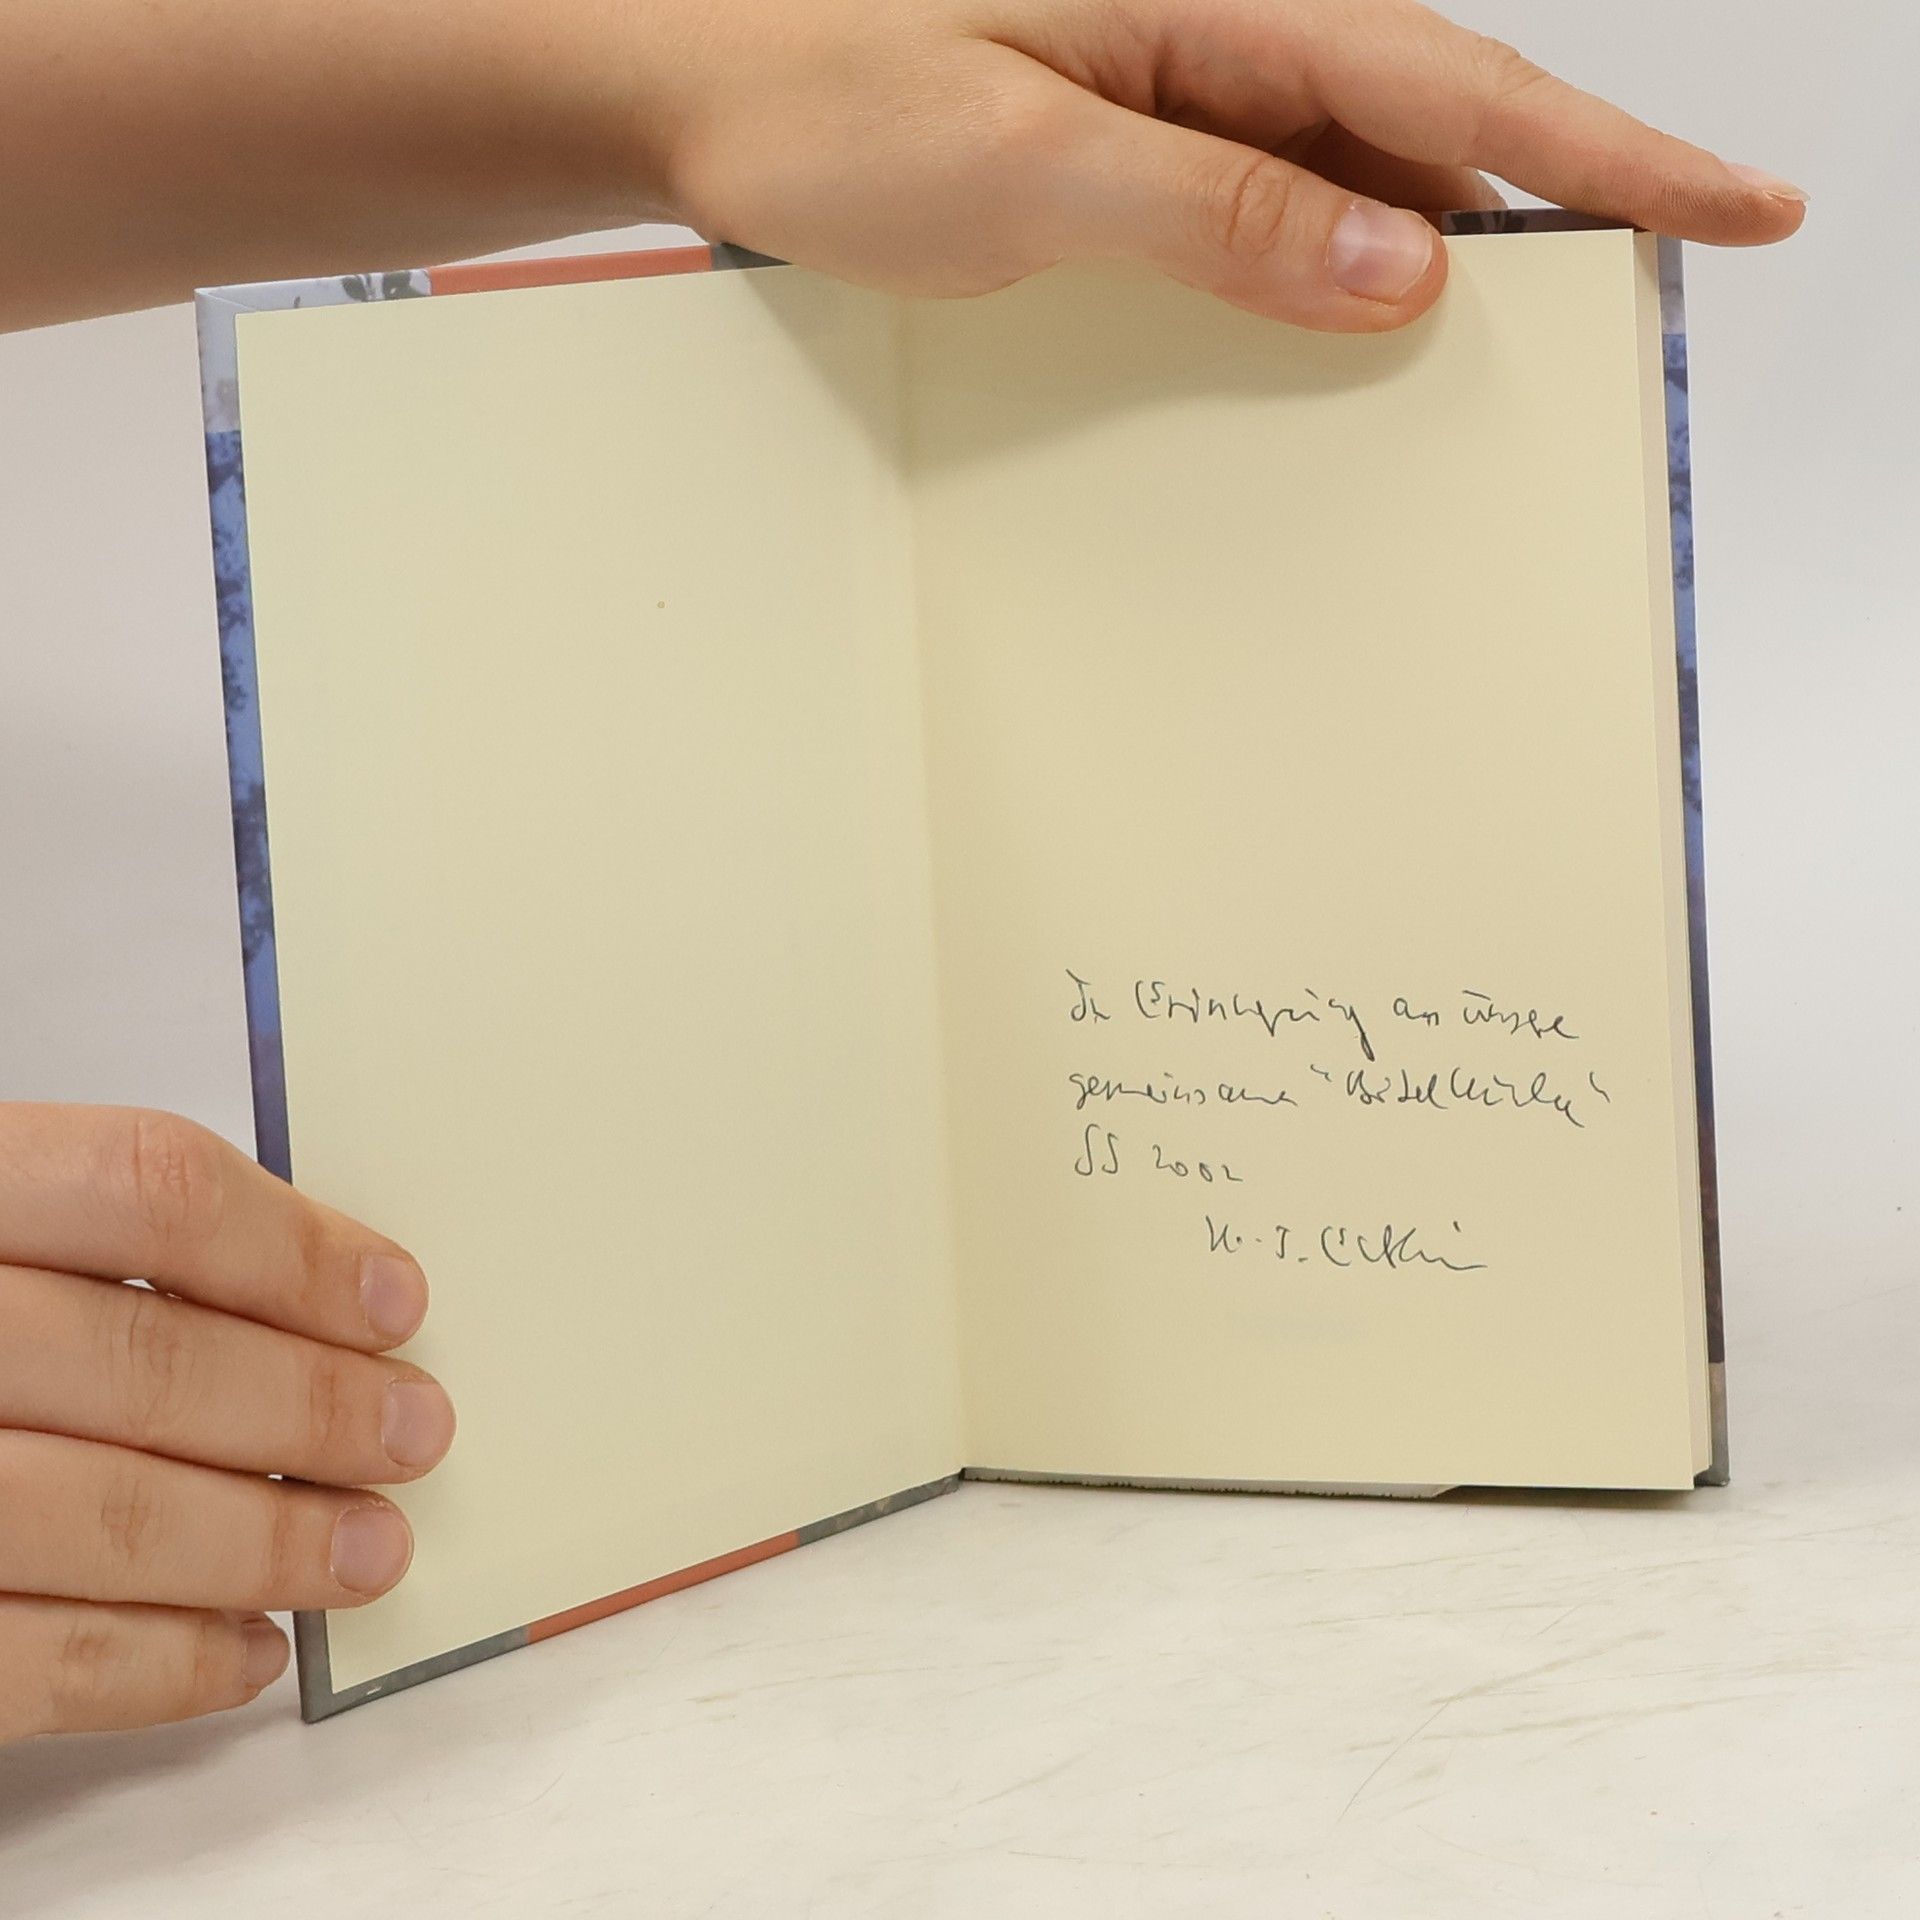 In Erinnerung an unsere
gemeinsame "Bibelkirche"
SS 2002